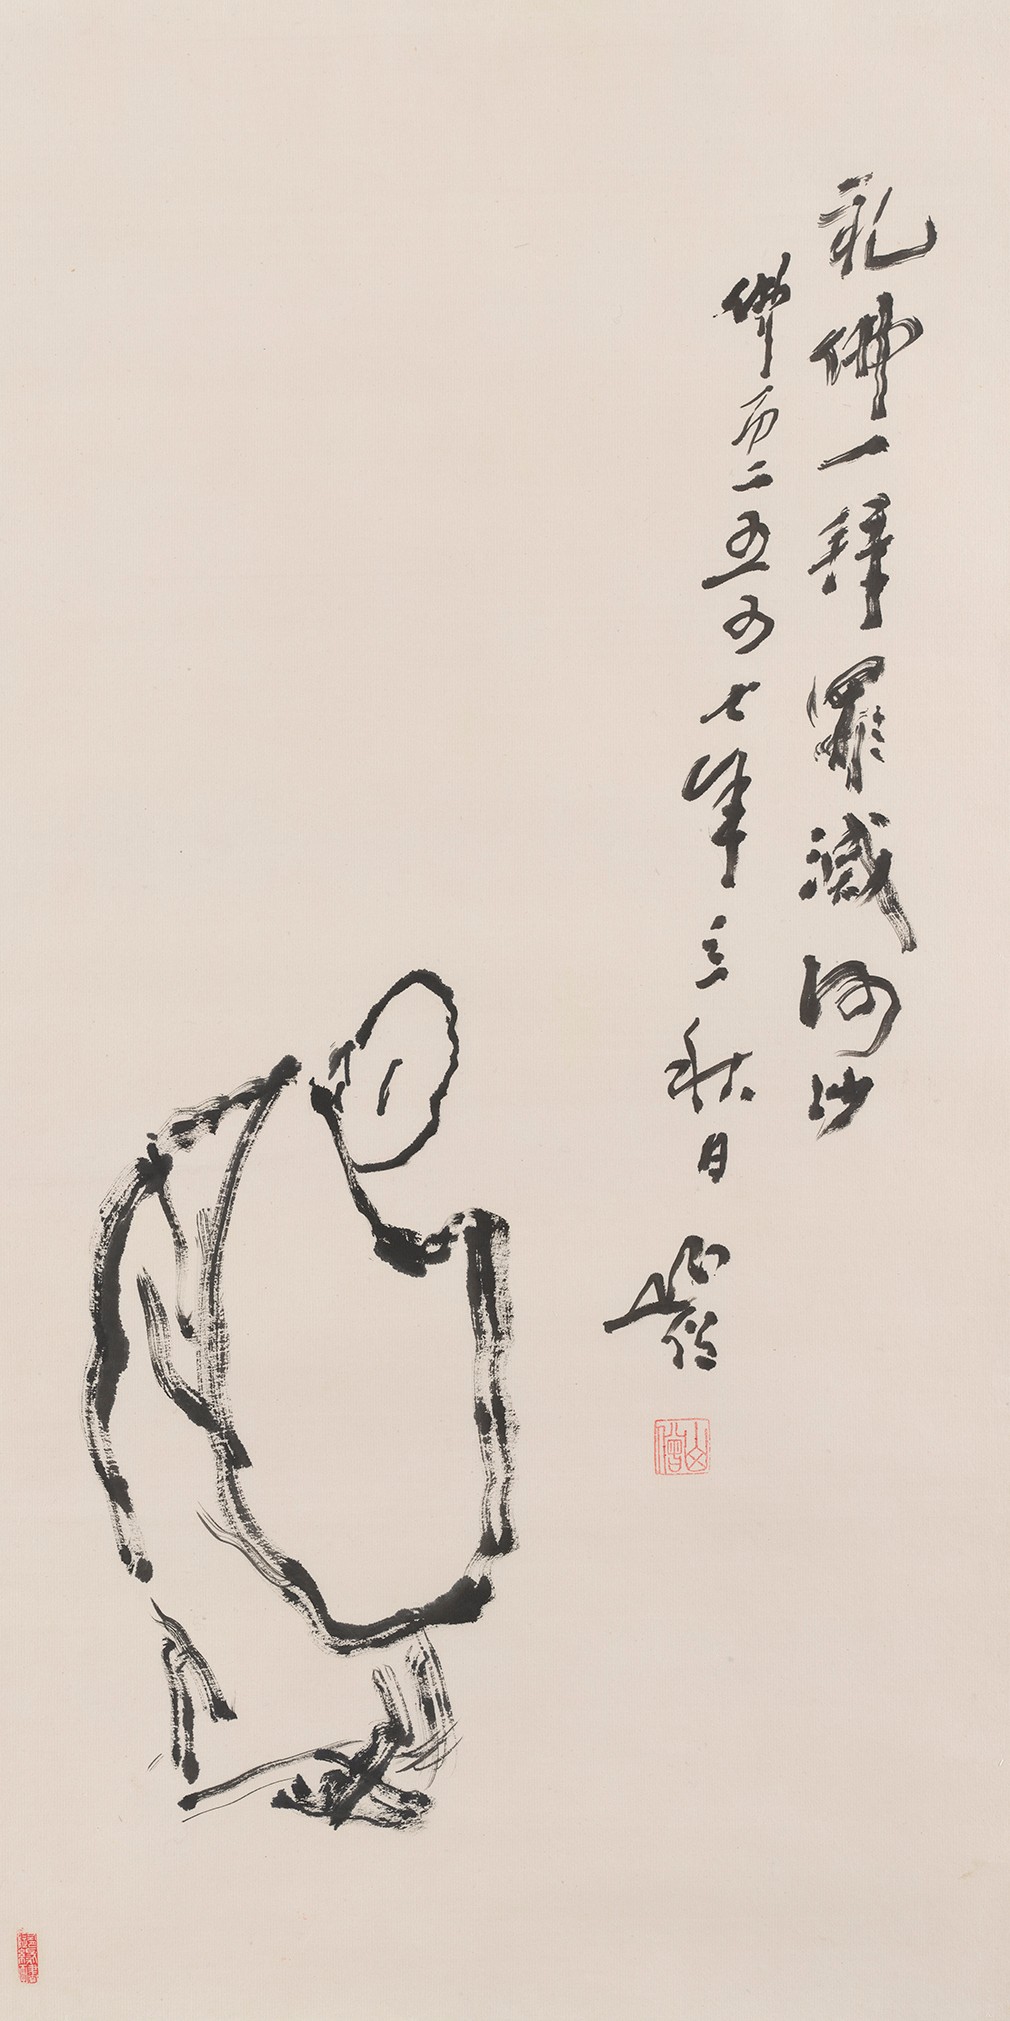 礼佛一拜罪滅河沙
佛历二五五七年立秋日
山僧